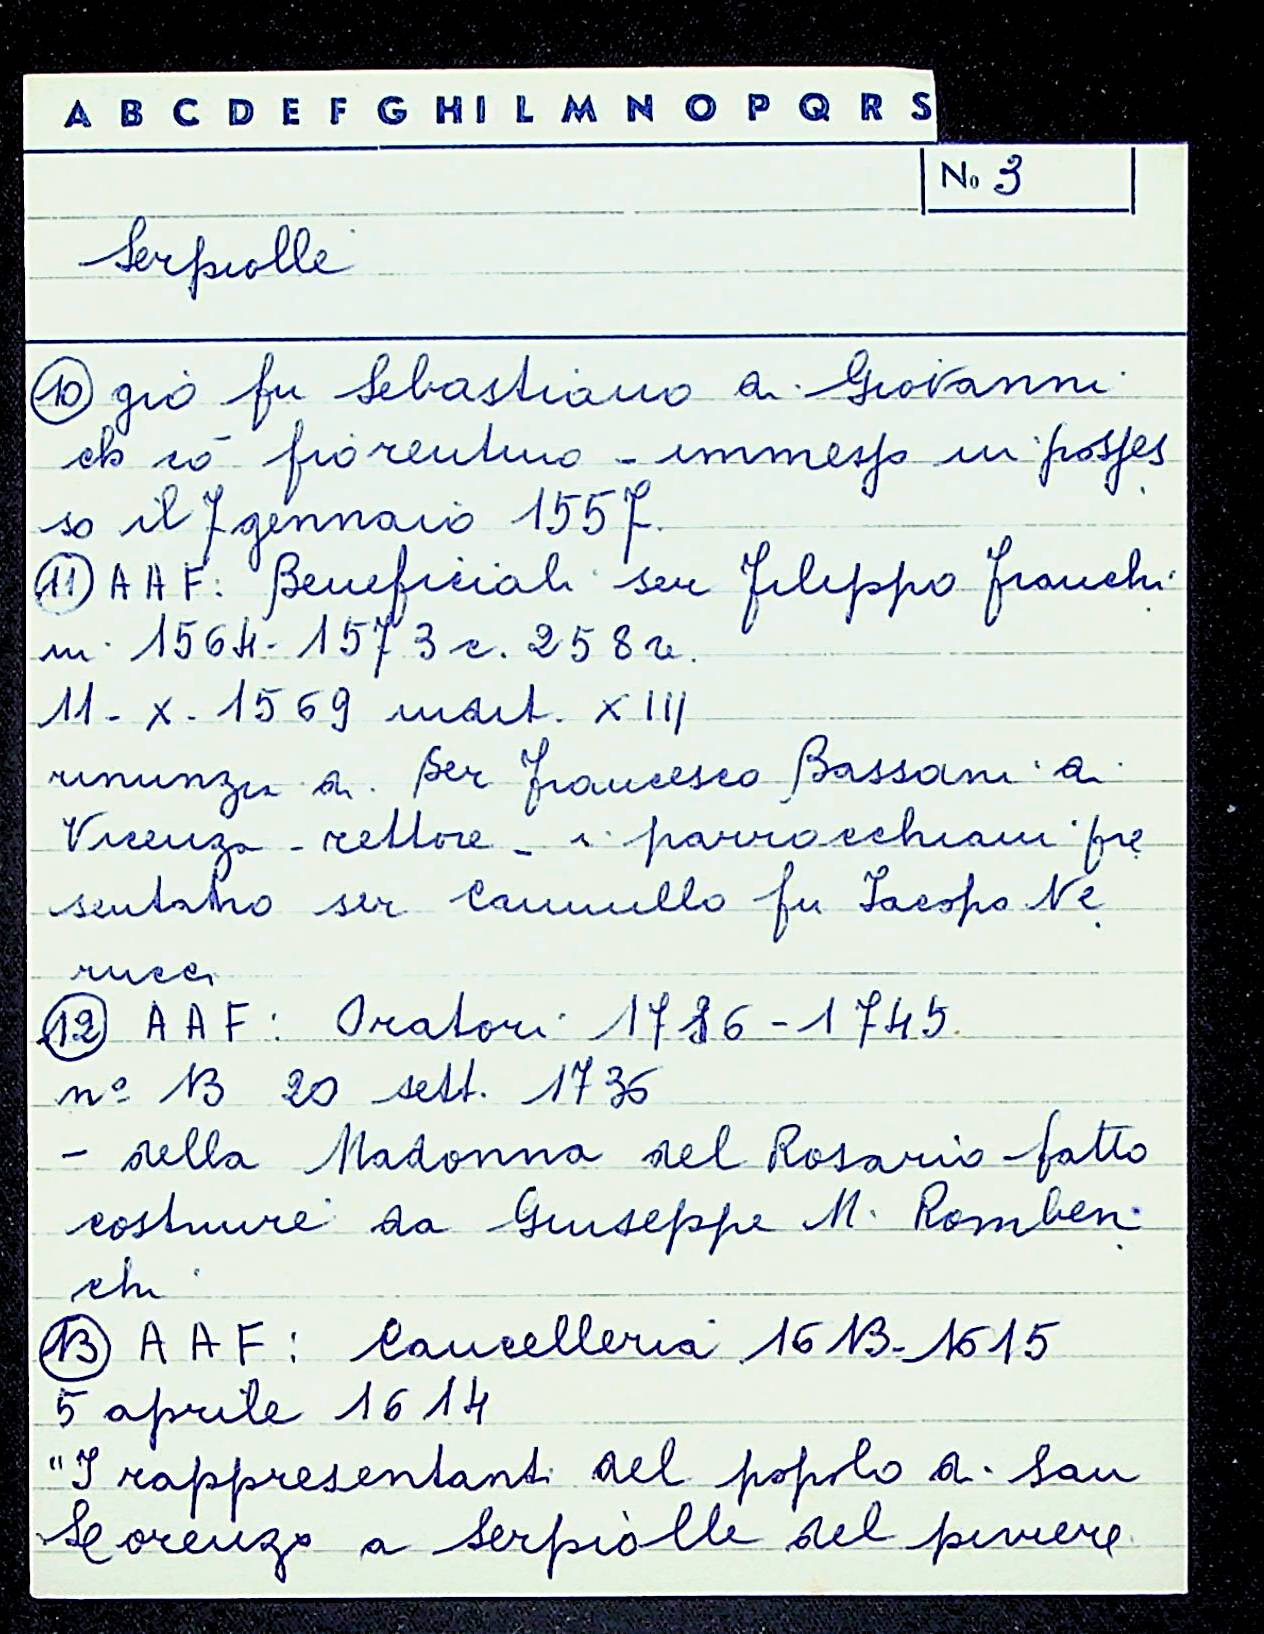 A B C D E F G H I L M N O P Q R S
No 3
Serpiolle
10 giò fu Sebastiano di Giovanni
fiorentino - immesso in posses
so il 7 gennaio 1557.
11 AAF: Beneficiali ser Filippo Franchi
ni 1564-1573 c. 258 r.
11 - X - 1569 indit. XIII
rinunzia di ser Francesco Bassani di
Vicenza - rettore - i parrocchiani pre
sentano ser Cammillo fu Jacopo Ne
rucci
12 AAF: Oratori 1726-1745
nº 13 20 sett. 1736
- della Madonna del Rosario - fatto
costruire da Giuseppe M. Romben
chi
13 AAF: Cancelleria 1613-1615
5 aprile 1614
"I rappresentanti del popolo di San
Lorenzo a Serpiolle del piviere